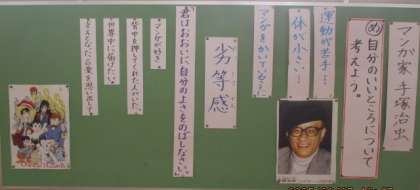 マンガ家 手塚治虫
め 自分のいいところについて
考えよう。
運動が苦手…
体が小さい…
マンガをかいていると…
劣等感
「君はおおいに、自分のよさをのばしなさい。」
マンガが好き。
背中を押してくれた人がいた。
世界中に届けたい。